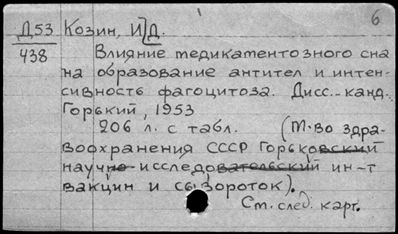 6
Д53 Козин, И.Д.
438
Влияние медикаментозного сна
на образование антител и интен-
сивность фагоцитоза. Дисс. канд.
Горький, 1953
206 л. с табл. (М-во здра-
воохранения СССР Горьковский
научно-исследовательский ин-т
вакцин и сывороток).
См. след. карт.